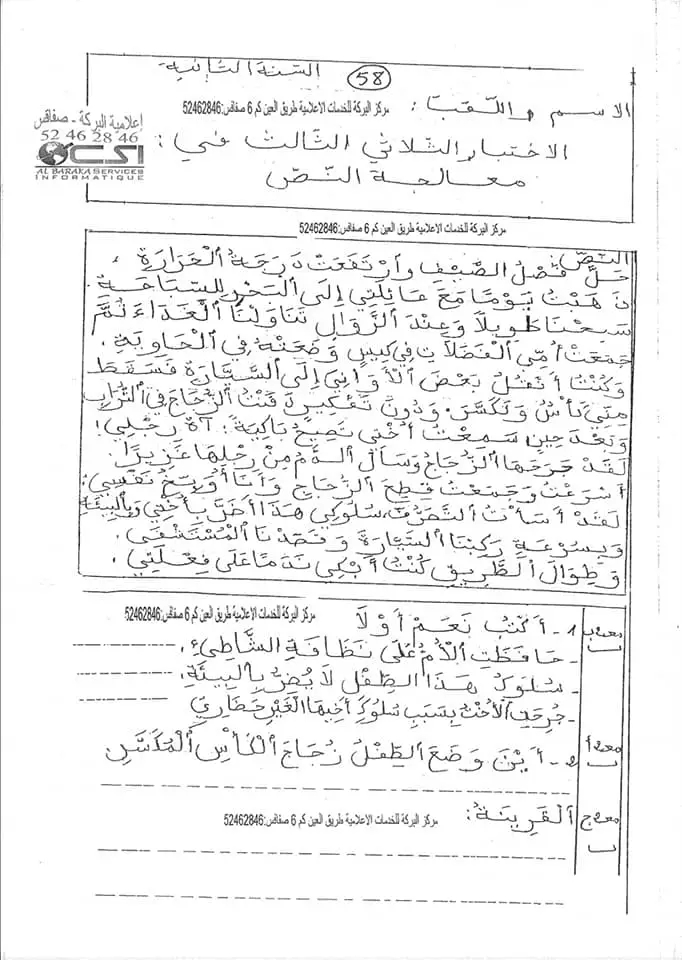 السنة الثانية
58
الاسم واللقب:
مركز البركة للخدمات الاعلامية طريق العين كم 6 صفاقس:52462846
إعلامية البركة - صفاقس
52 46 28 46
CSI
AL BARAKA SERVICES
INFORMATIQUE
الاختبار الثلاثي الثالث في:
معالجة النّصّ
مركز البركة للخدمات الاعلامية طريق العين كم 6 صفاقس:52462846
النّصّ:
حَلَّ فَصْلُ الصَّيْفِ وَارْتَفَعَتْ دَرَجَةُ الْحَرَارَةِ.
ذَهَبْتُ يَوْمًا مَعَ عَائِلَتِي إِلَى الْبَحْرِ لِلسِّبَاحَةِ.
سَبَحْنَا طَوِيلاً وَعِنْدَ الزَّوَالِ تَنَاوَلْنَا الْغَدَاءَ ثُمَّ
جَمَعَتْ أُمِّي الْفَضَلاَتِ فِي كِيسٍ وَضَعَتْهُ فِي الْحَاوِيَةِ.
وَكُنْتُ أَنْقُلُ بَعْضَ الْأَوَانِيَ إِلَى السَّيَّارَةِ فَسَقَطَ
مِنِّي كَأْسٌ وَتَكَسَّرَ. وَدُونَ تَفْكِيرٍ دَفَنْتُ الزُّجَاجَ فِي التُّرَابِ
وَبَعْدَ حِينٍ سَمِعْتُ أُخْتِي تَصِيحُ بَاكِيَةً: آهْ رِجْلِي!
لَقَدْ جَرَحَهَا الزُّجَاجُ وَسَالَ الدَّمُ مِنْ رِجْلِهَا غَزِيرًا.
أَسْرَعْتُ وَجَمَعْتُ قِطَعَ الزُّجَاجِ وَأَنَا أُوَبِّخُ نَفْسِي:
لَقَدْ أَسَأْتُ التَّصَرُّفَ، سُلُوكِي هَذَا أَضَرَّ بِأُخْتِي وَبِالْبِيئَةِ
وَبِسُرْعَةٍ رَكِبْنَا السَّيَّارَةَ وَقَصَدْنَا الْمُسْتَشْفَى.
وَطِوَالَ الطَّرِيقِ كُنْتُ أَبْكِي نَدَمًا عَلَى فِعْلَتِي.
مركز البركة للخدمات الاعلامية طريق العين كم 6 صفاقس:52462846
1 - أَكْتُبُ نَعَمْ أَوْ لَا
- حَافَظَتِ الْأُمُّ عَلَى نَظَافَةِ الشَّاطِئِ.
- سُلُوكُ هَذَا الطِّفْلِ لَا يُضِرُّ بِالْبِيئَةِ.
- جُرِحَتِ الْأُخْتُ بِسَبَبِ سُلُوكِ أَخِيهَا الْغَيْرِ حَضَارِيّ
2 - أَيْنَ وَضَعَ الطِّفْلُ زُجَاجَ الْكَأْسِ الْمُكَسَّرِ
مع أ
مع ج
الْقَرِينَةُ:
مركز البركة للخدمات الاعلامية طريق العين كم 6 صفاقس:52462846